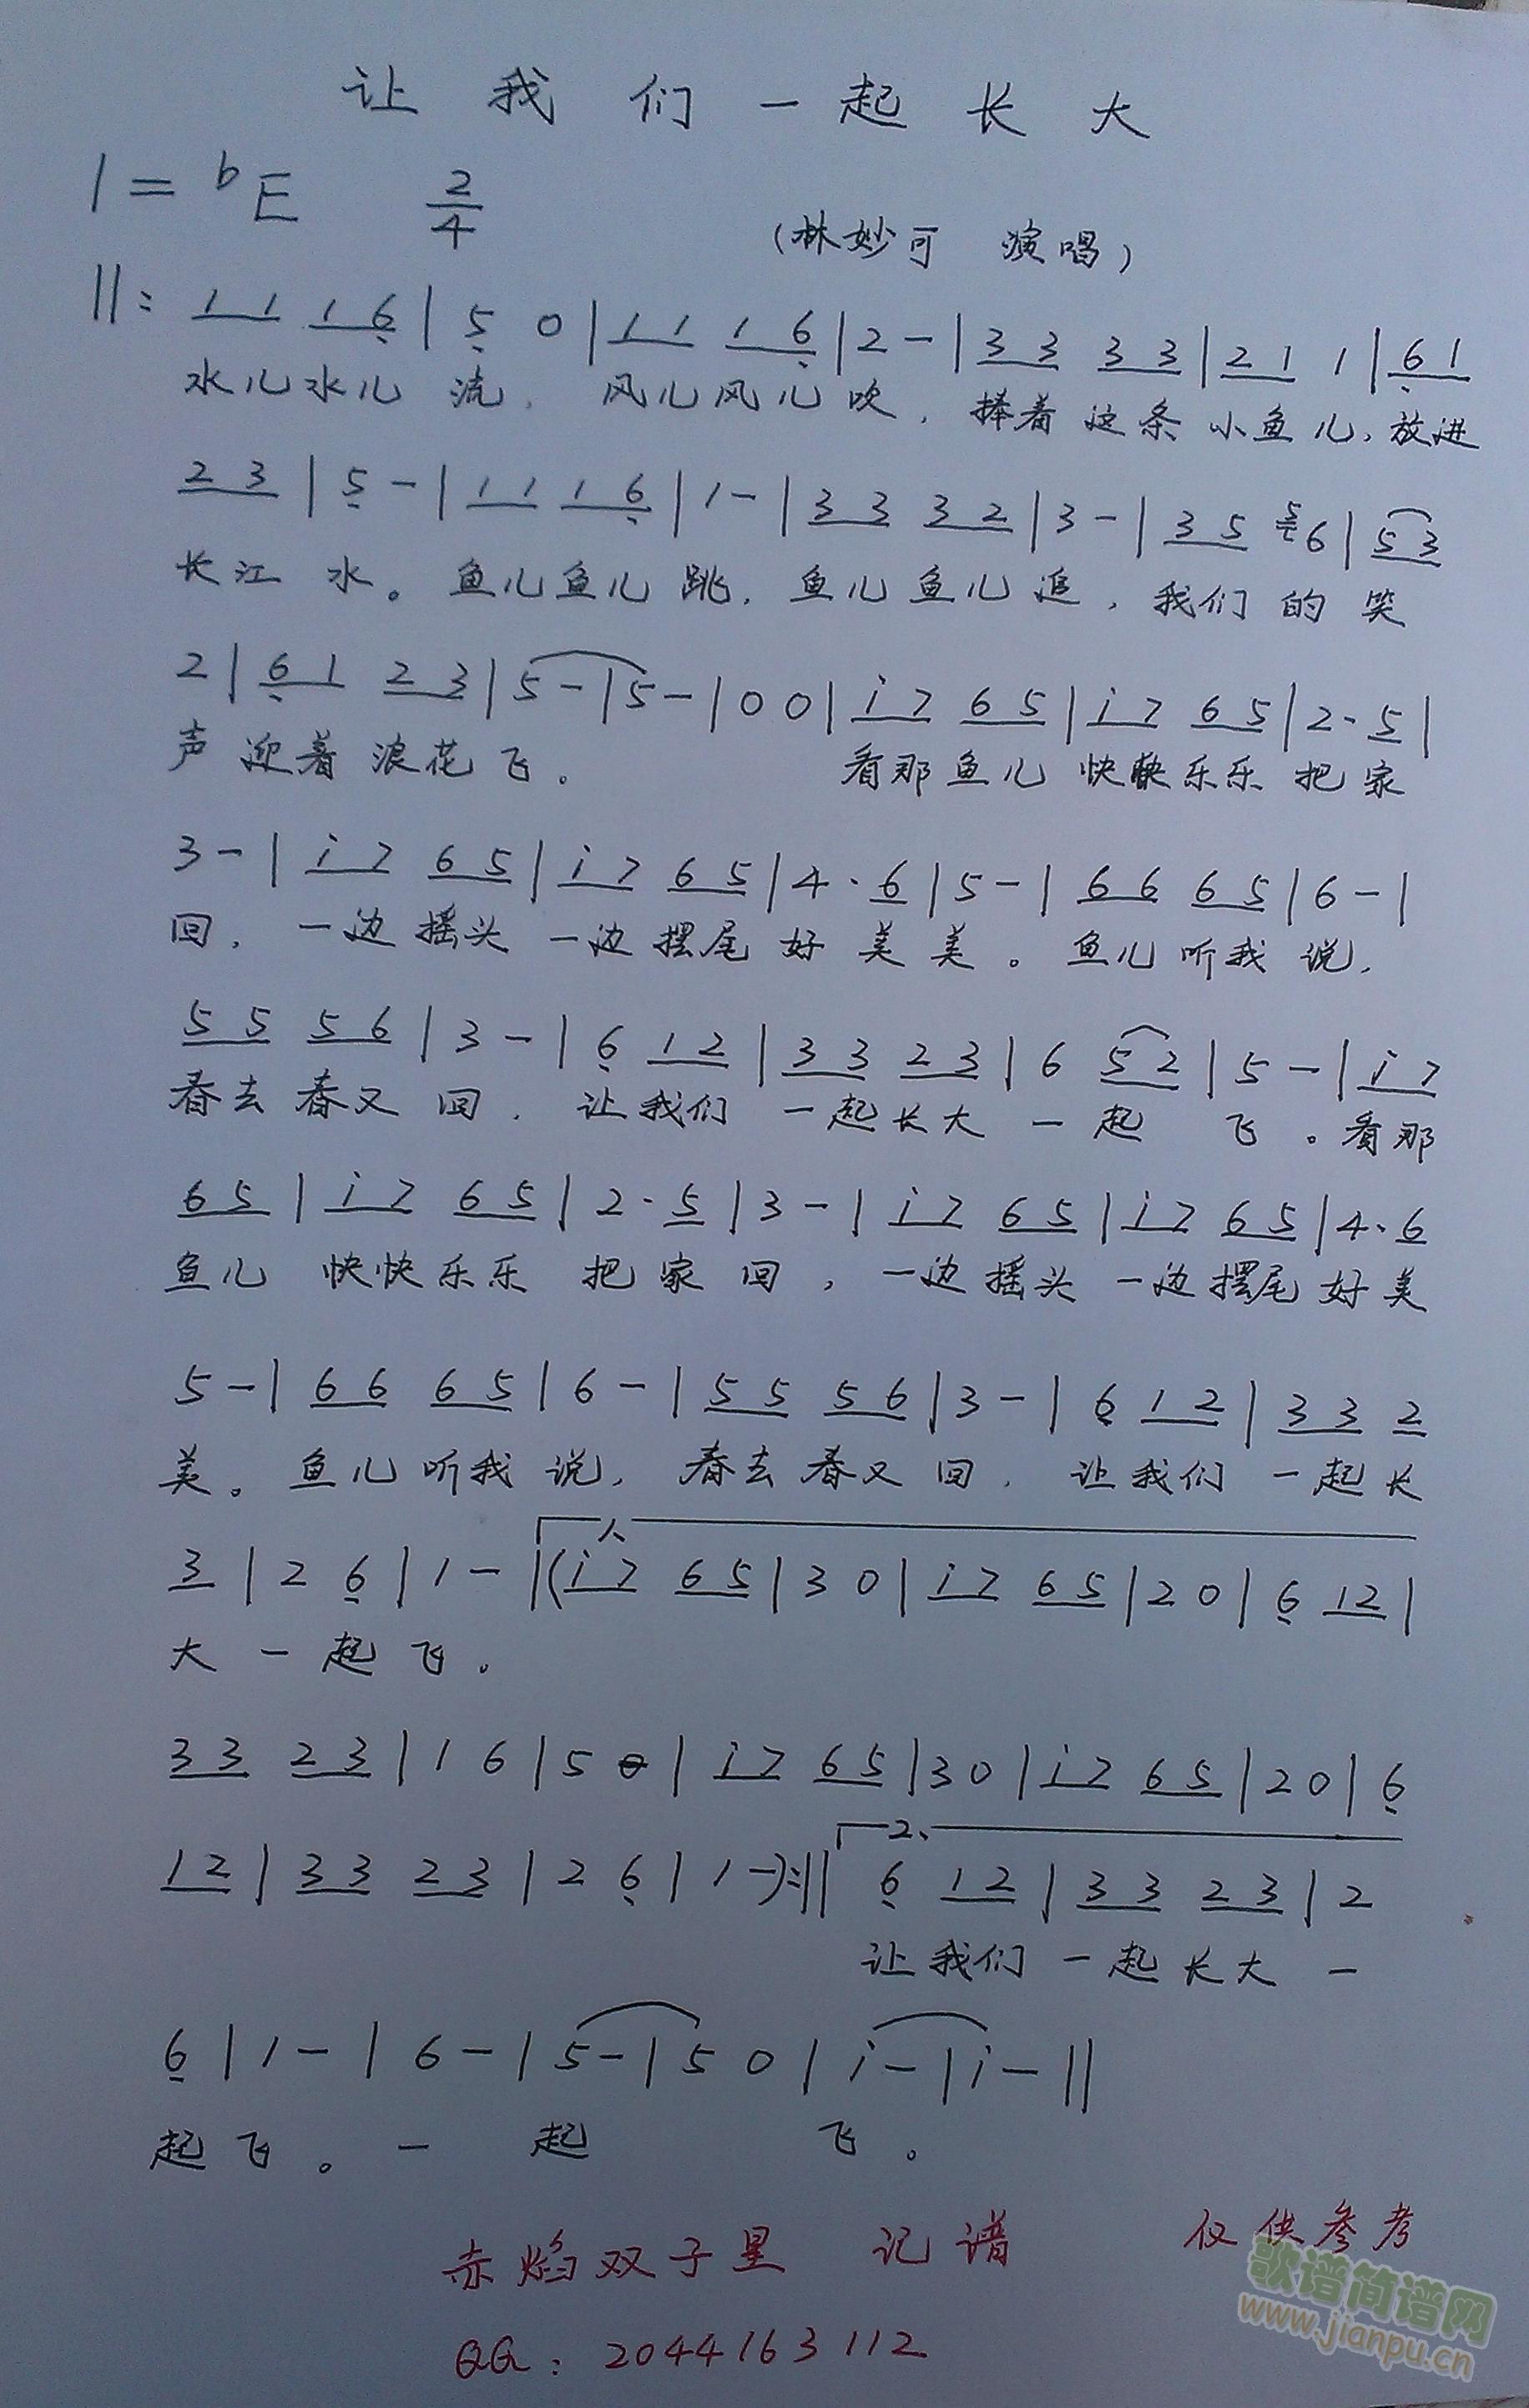 让我们一起长大
1=bE 2/4
(林妙可 演唱)
||: 1 1 1 6 | 5 0 | 1 1 1 6 | 2 - | 3 3 3 3 | 2 1 1 | 6 1
水儿水儿 流, 风儿风儿吹, 捧着这条小鱼儿, 放进
2 3 | 5 - | 1 1 1 6 | 1 - | 3 3 3 2 | 3 - | 3 5 5 6 | 5 3
长江 水。鱼儿鱼儿 跳, 鱼儿鱼儿追, 我们的 笑
2 | 6 1 2 3 | 5 - | 5 - | 0 0 | i 7 6 5 | i 7 6 5 | 2 · 5 |
声 迎着 浪花 飞。 看那鱼儿 快快乐乐 把家
3 - | i 7 6 5 | i 7 6 5 | 4 · 6 | 5 - | 6 6 6 5 | 6 - |
回, 一边摇头 一边摆尾 好 美 美。鱼儿听我说,
5 5 5 6 | 3 - | 6 1 2 | 3 3 2 3 | 6 5 2 | 5 - | i 7
春去春又 回, 让我们 一起长大 一 起 飞。看那
6 5 | i 7 6 5 | 2 · 5 | 3 - | i 7 6 5 | i 7 6 5 | 4 · 6
鱼儿 快快乐乐 把家 回, 一边摇头 一边摆尾 好美
5 - | 6 6 6 5 | 6 - | 5 5 5 6 | 3 - | 6 1 2 | 3 3 2
美。鱼儿听我说, 春去春又 回, 让我们 一起长
1、
3 | 2 6 | 1 - | (i 7 6 5 | 3 0 | i 7 6 5 | 2 0 | 6 1 2 |
大 一 起 飞。
3 3 2 3 | 1 6 | 5 0 | i 7 6 5 | 3 0 | i 7 6 5 | 2 0 | 6
2、
1 2 | 3 3 2 3 | 2 6 | 1 - ) :|| 6 1 2 | 3 3 2 3 | 2
让我们 一起长大 一
6 | 1 - | 6 - | 5 - | 5 0 | i - | i - ||
起飞。一 起 飞。
赤焰双子星 记谱 仅供参考
QQ: 2044163112
歌谱简谱网
www.jianpu.cn